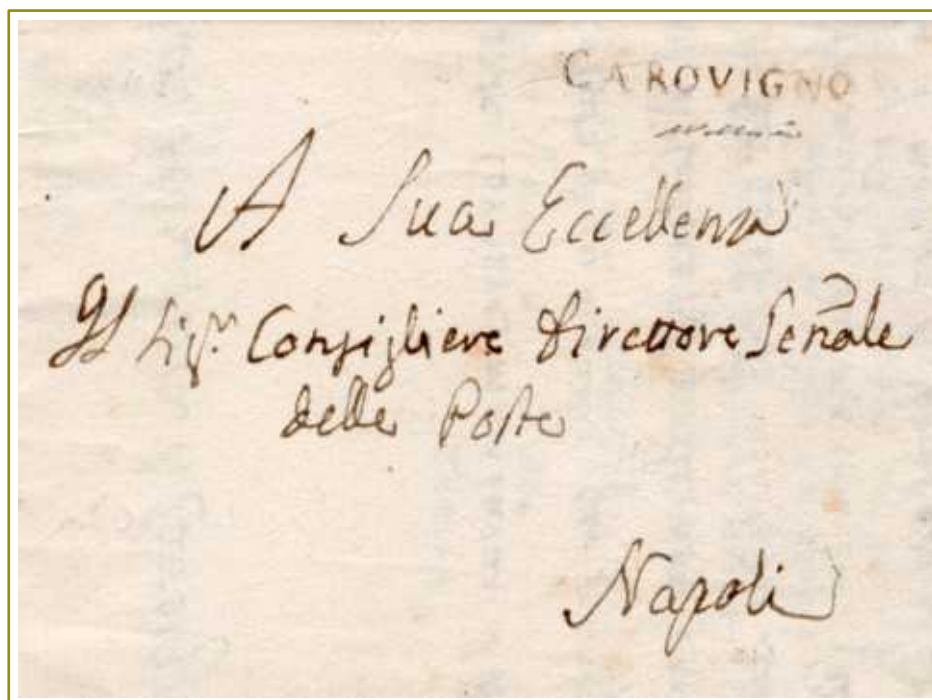 CAROVIGNO
A Sua Eccellenza
Il Sigr. Consigliere Direttore Genãle
delle Poste
Napoli